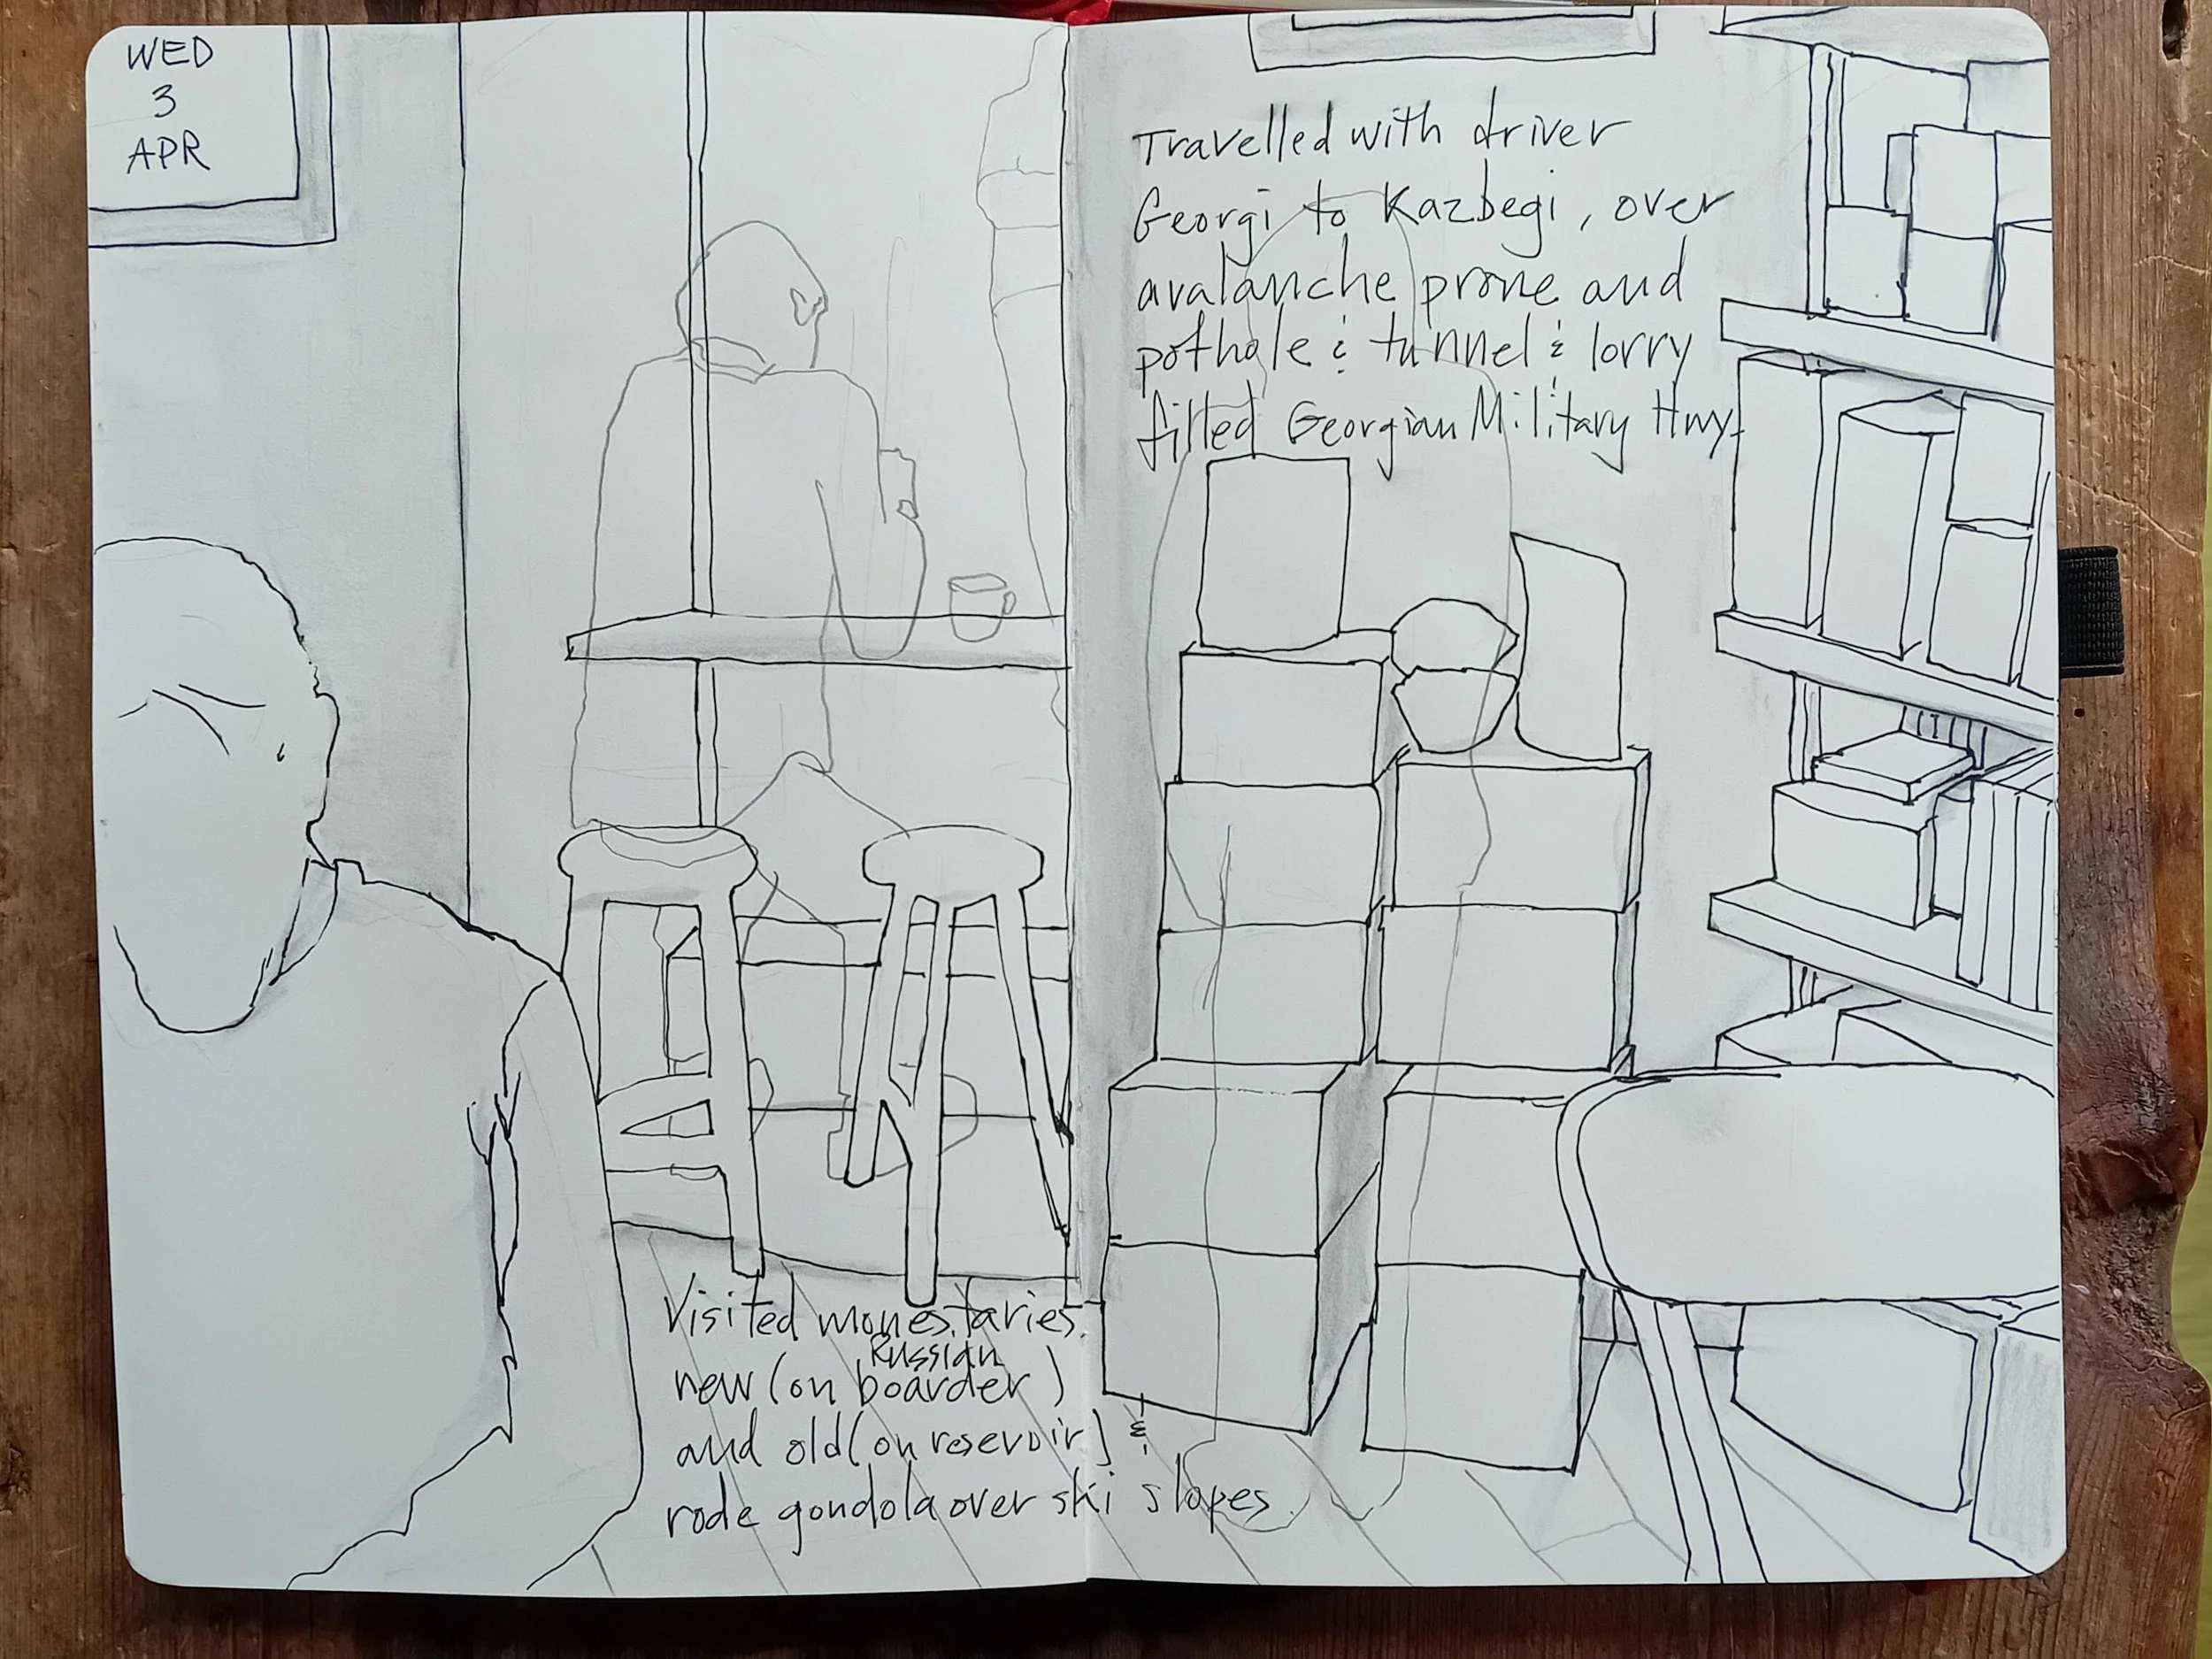 WED
3
APR
Travelled with driver
Georgi to Kazbegi, over
avalanche prone and
pothole & tunnel & lorry
filled Georgian Military Hwy.
Visited monestaries.
Russian
new (on boarder)
and old (on resevoir) &
rode gondola over ski slopes.